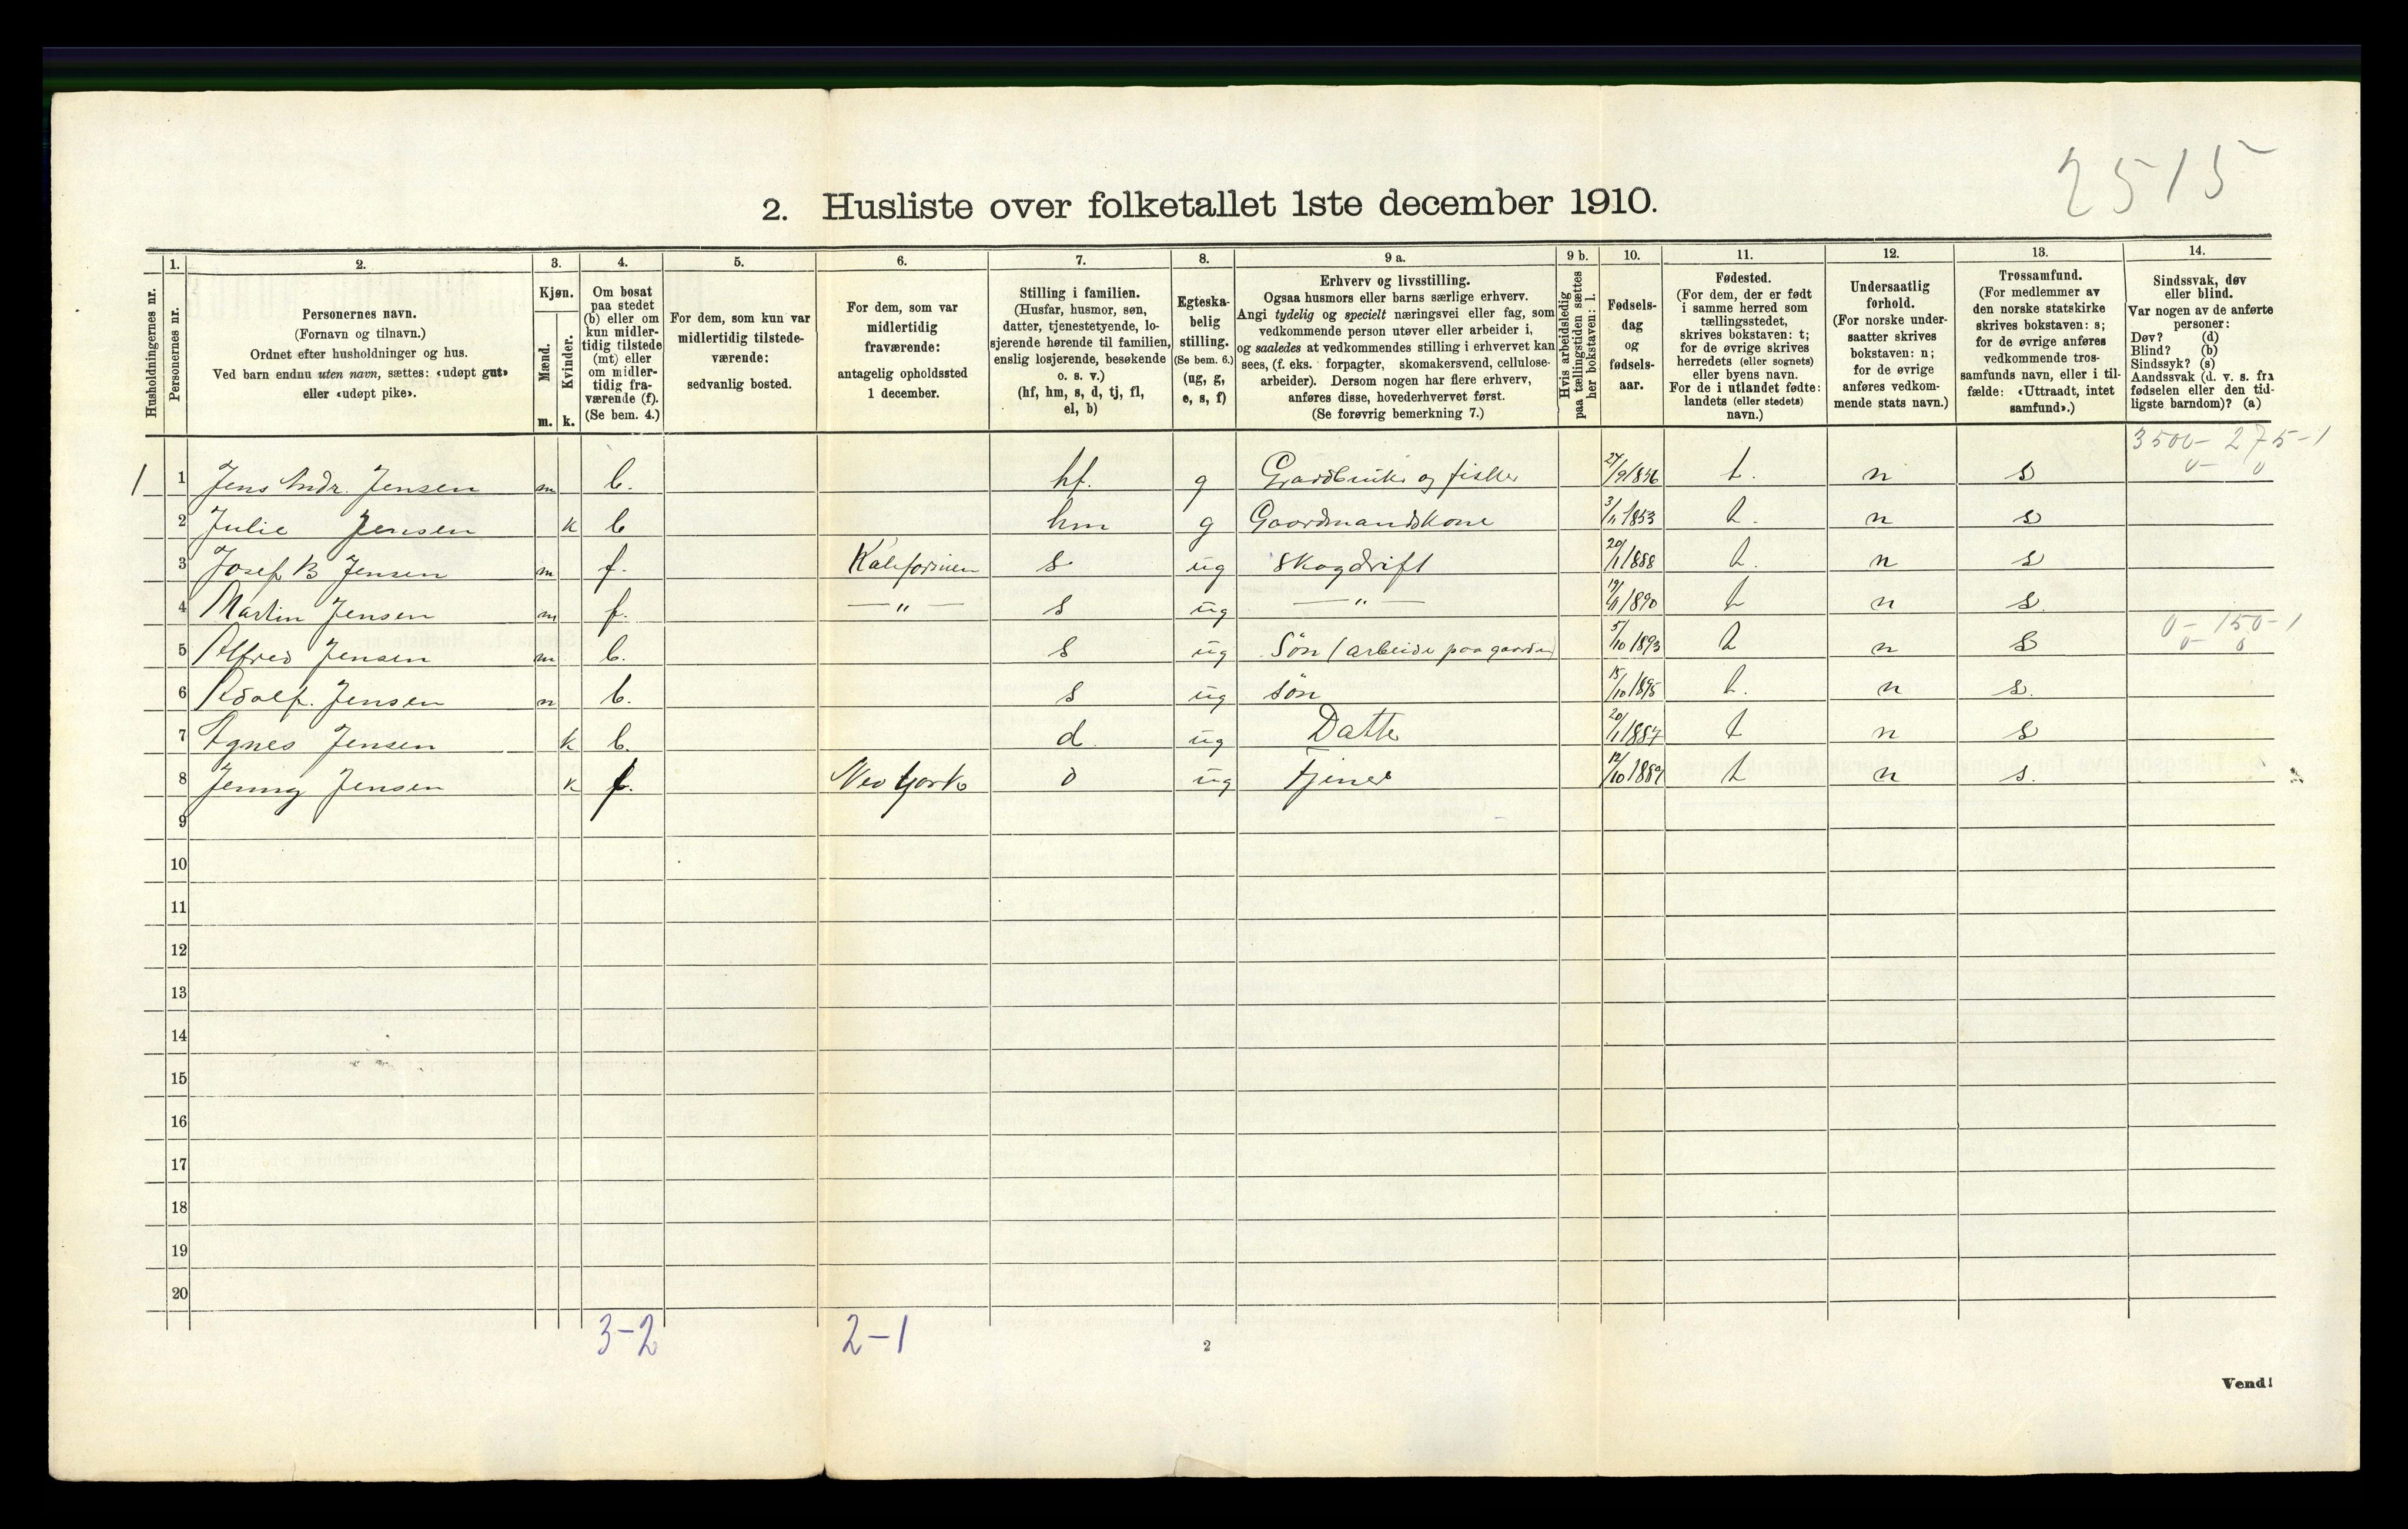 2515
2. Husliste over folketallet 1ste december 1910.
Husholdningernes nr.
1. Personernes nr.
2. Personernes navn.
(Fornavn og tilnavn.)
Ordnet efter husholdninger og hus.
Ved barn endnu uten navn, sættes: «udøpt gut»
eller «udøpt pike».
3. Kjøn.
Mænd. m.
Kvinder. k.
4. Om bosat
paa stedet
(b) eller om
kun midler-
tidig tilstede
(mt) eller
om midler-
tidig fra-
værende (f).
(Se bem. 4.)
5. For dem, som kun var
midlertidig tilstede-
værende:
sedvanlig bosted.
6. For dem, som var
midlertidig
fraværende:
antagelig opholdssted
1 december.
7. Stilling i familien.
(Husfar, husmor, søn,
datter, tjenestetyende, lo-
sjerende hørende til familien,
enslig losjerende, besøkende
o. s. v.)
(hf, hm, s, d, tj, fl,
el, b)
8. Egteska-
belig
stilling.
(Se bem. 6.)
(ug, g,
e, s, f)
9 a. Erhverv og livsstilling.
Ogsaa husmors eller barns særlige erhverv.
Angi tydelig og specielt næringsvei eller fag, som
vedkommende person utøver eller arbeider i,
og saaledes at vedkommendes stilling i erhvervet kan
sees, (f. eks. forpagter, skomakersvend, cellulose-
arbeider). Dersom nogen har flere erhverv,
anføres disse, hovederhvervet først.
(Se forøvrig bemerkning 7.)
9 b. Hvis arbeidsledig
paa tællingstiden sættes
her bokstaven: l.
10. Fødsels-
dag
og
fødsels-
aar.
11. Fødested.
(For dem, der er født
i samme herred som
tællingsstedet,
skrives bokstaven: t;
for de øvrige skrives
herredets (eller sognets)
eller byens navn.
For de i utlandet fødte:
landets (eller stedets)
navn.)
12. Undersaatlig
forhold.
(For norske under-
saatter skrives
bokstaven: n;
for de øvrige
anføres vedkom-
mende stats navn.)
13. Trossamfund.
(For medlemmer av
den norske statskirke
skrives bokstaven: s;
for de øvrige anføres
vedkommende tros-
samfunds navn, eller i til-
fælde: «Uttraadt, intet
samfund».)
14. Sindssvak, døv
eller blind.
Var nogen av de anførte
personer:
Døv? (d)
Blind? (b)
Sindssyk? (s)
Aandssvak (d. v. s. fra
fødselen eller den tid-
ligste barndom)? (a)
3500- 275-1
0- 0
1 1 Jens Andr. Jensen m b. hf. g Gaardbruker og fisker 27/9 1856 t. n s
2 Julie Jensen k b hm g Gaardmandskone 3/11 1853 t. n s
3 Josef B Jensen m f. Kalefornien s ug skogdrift 20/1 1888 t. n s
4 Martin Jensen m f. — " — s ug — " — 19/11 1890 t n s
0- 150-1
0- 0
5 Alfred Jensen m b. s ug Søn (arbeide paa gaarden) 5/10 1893 t n s
6 Adolf. Jensen m b. s ug søn 15/10 1895 t. n s.
7 Agnes Jensen k b. d. ug Datter 20/1 1887 t n s
8 Jenny Jensen k f. Neo York d ug tjener 12/10 1889 t n s.
9
10
11
12
13
14
15
16
17
18
19
20
3-2 2-1
2
Vend!